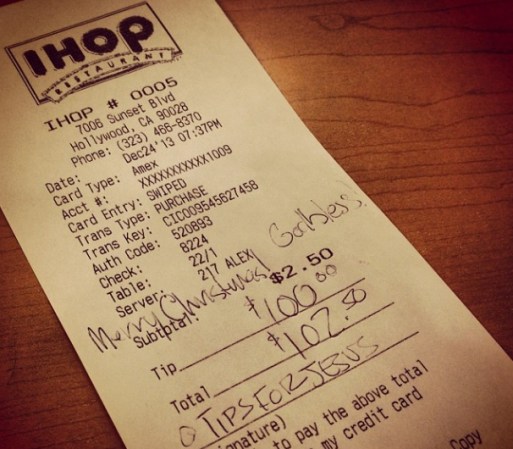 IHOP
RESTAURANT
IHOP # 0005
7006 Sunset Blvd
Hollywood, CA 90028
Phone: (323) 466-8370
Date: Dec24'13 07:37PM
Card Type: Amex
Acct #: XXXXXXXXXXX1009
Card Entry: SWIPED
Trans Type: PURCHASE
Trans Key: CIC009545627458
Auth Code: 520893
Check: 8224
Table: 22/1
Server: 217 ALEX
Merry Christmas! God bless!
Subtotal: $2.50
Tip $100.00
Total $102.50
@TIPSFORJESUS
nature)
to pay the above total
my credit card
Copy